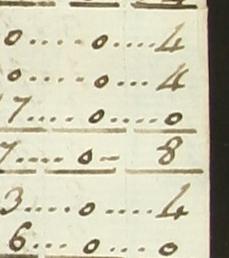 0....0....4
0....0....4
7....0....0
7....0- 8
3....0....4
6...0...0